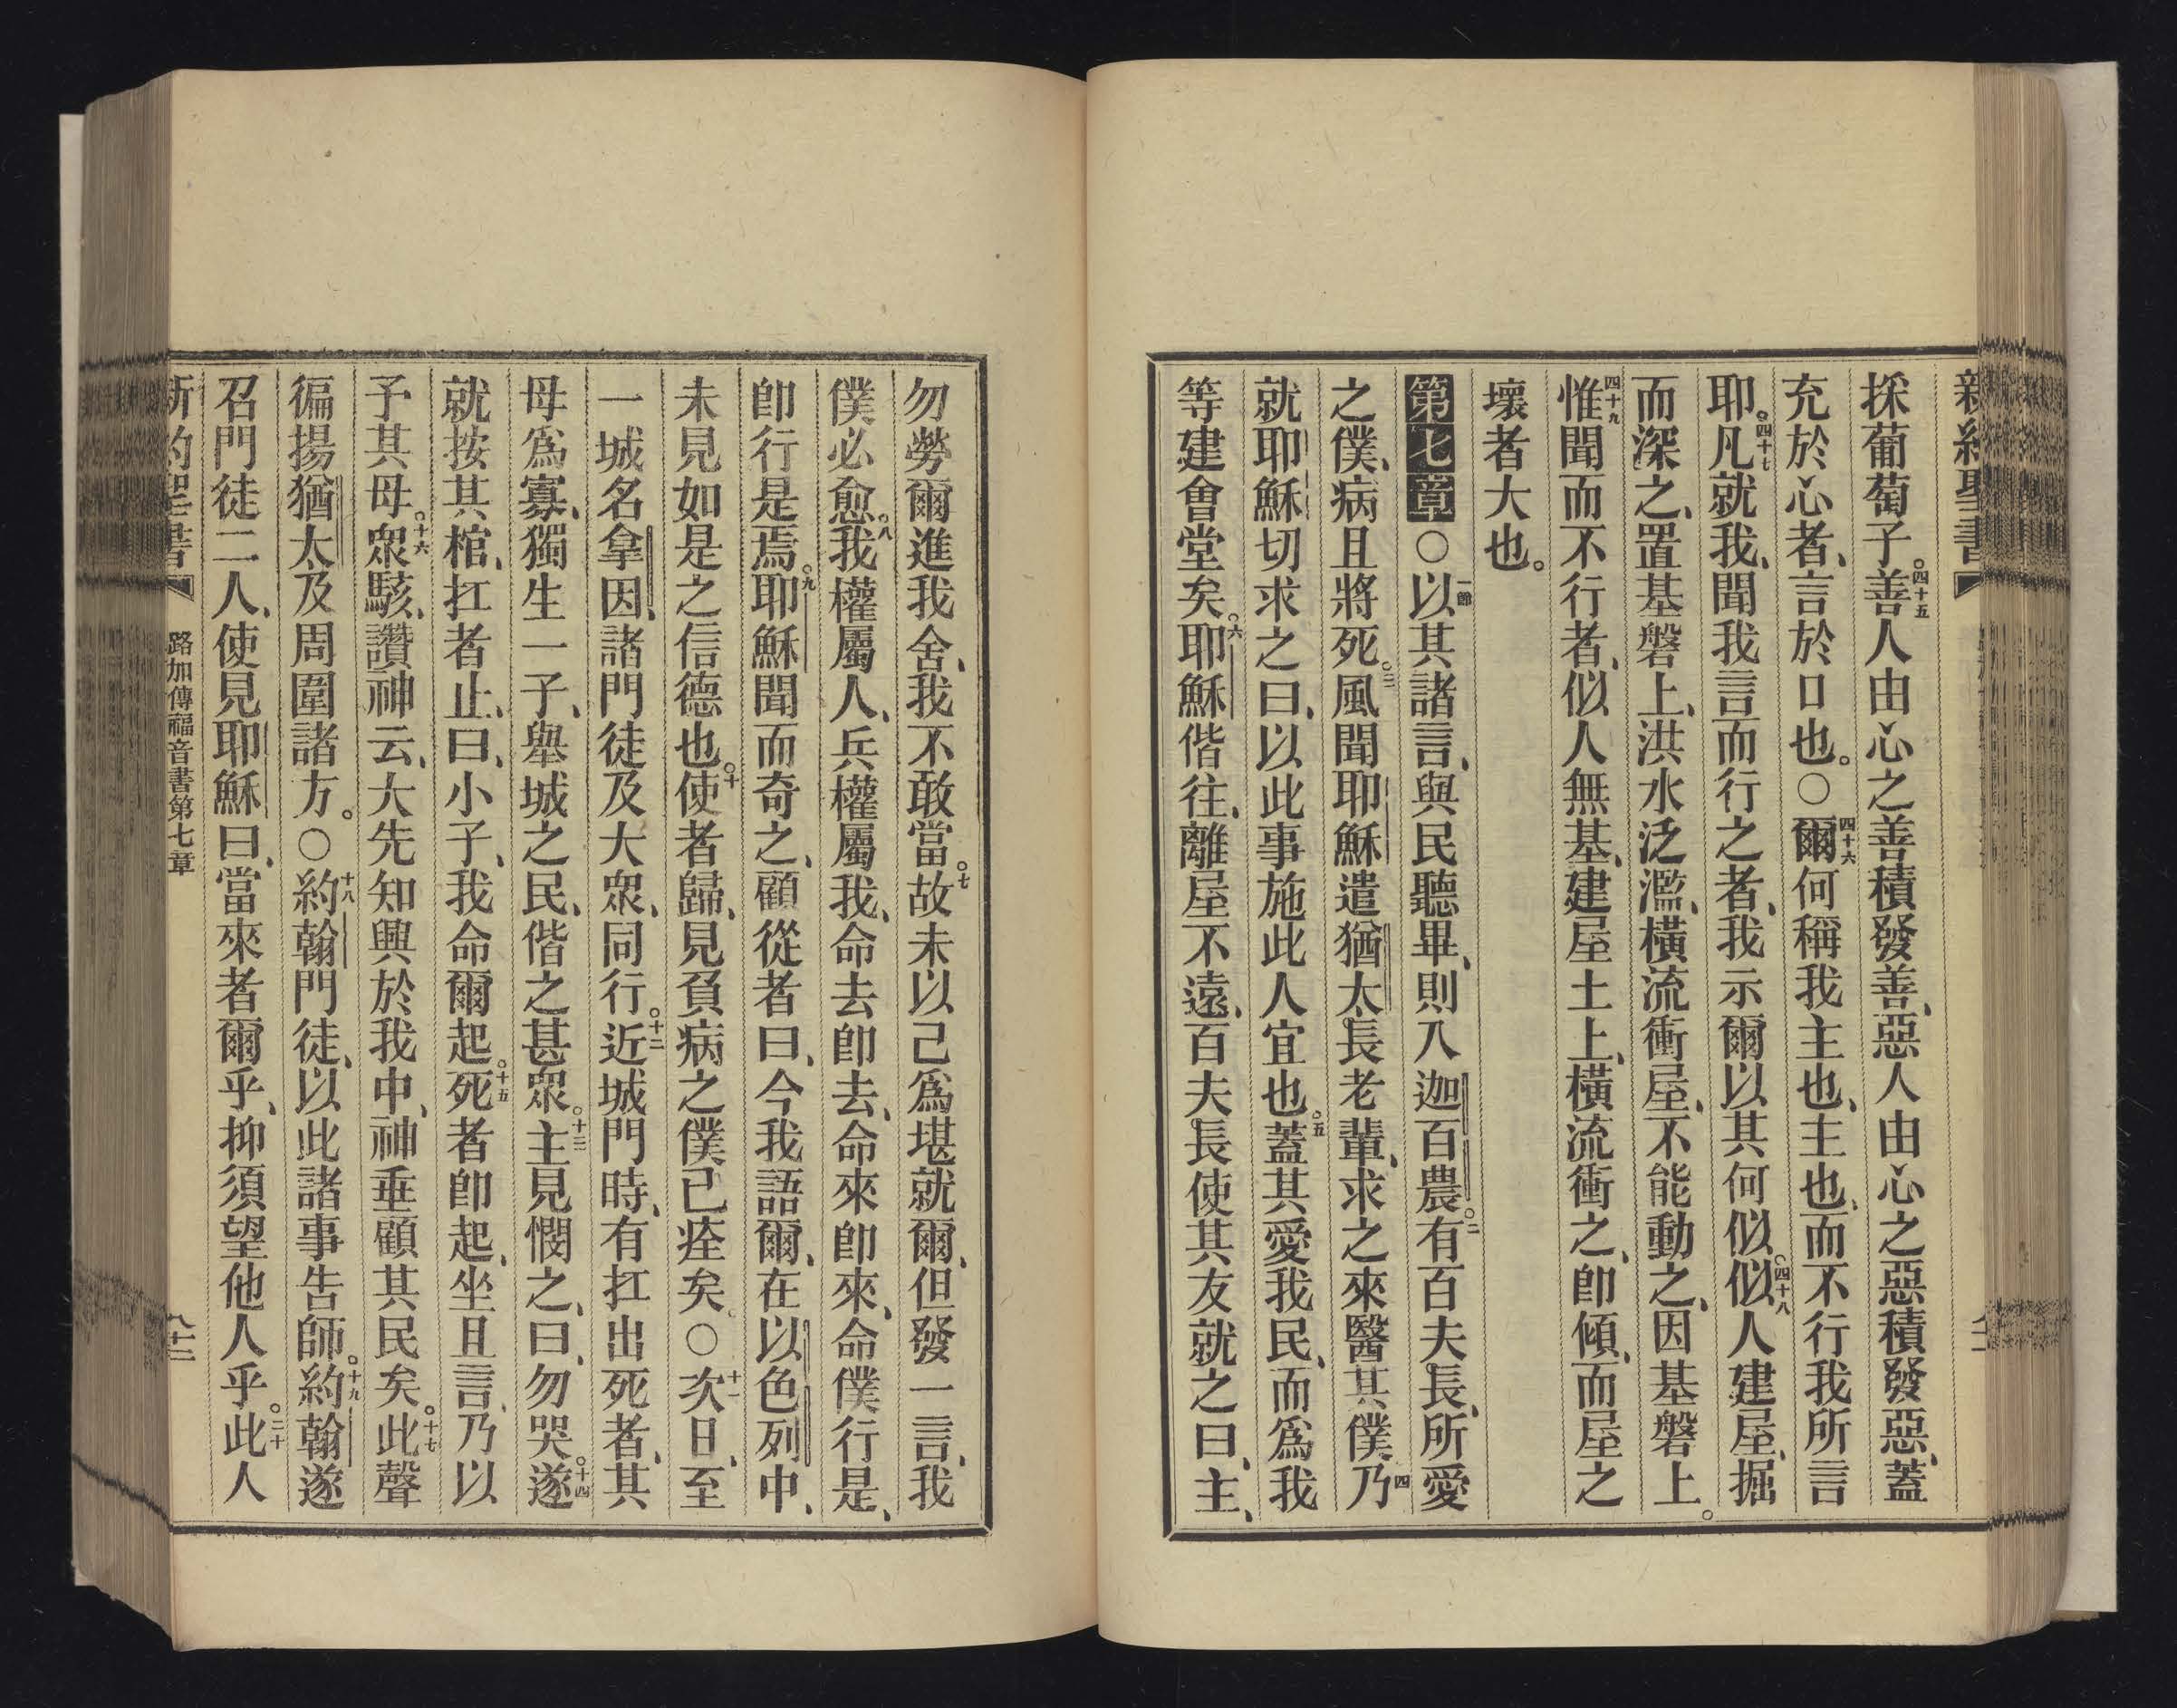 新約聖書
採葡萄子。四十五善人由心之善積發善、惡人由心之惡積發惡、蓋
充於心者、言於口也。○四十六爾何稱我主也、主也、而不行我所言
耶。四十七凡就我、聞我言而行之者、我示爾以其何似。四十八似人建屋、掘
而深之、置基磐上、洪水泛濫、橫流衝屋、不能動之、因基磐上。
四十九惟聞而不行者、似人無基、建屋土上、橫流衝之、卽傾、而屋之
壞者大也。
第七章○一節以其諸言、與民聽畢、則入迦百農。二有百夫長、所愛
之僕、病且將死。三風聞耶穌、遣猶太長老輩、求之來醫其僕、四乃
就耶穌切求之曰、以此事施此人宜也。五蓋其愛我民、而爲我
等建會堂矣。六耶穌偕往、離屋不遠、百夫長使其友就之曰、主、
勿勞爾進我舍、我不敢當。七故未以己爲堪就爾、但發一言、我
僕必愈。八我權屬人、兵權屬我、命去卽去、命來卽來、命僕行是、
卽行是焉。九耶穌聞而奇之、顧從者曰、今我語爾、在以色列中、
未見如是之信德也。十使者歸、見負病之僕已痊矣。○十一次日、至
一城名拿因、諸門徒及大衆、同行。十二近城門時、有扛出死者、其
母爲寡、獨生一子、舉城之民、偕之甚衆。十三主見憫之、曰、勿哭。十四遂
就按其棺、扛者止、曰、小子、我命爾起。十五死者卽起、坐且言、乃以
予其母。十六衆駭、讚神云、大先知興於我中、神垂顧其民矣。十七此聲
徧揚猶太及周圍諸方。○十八約翰門徒、以此諸事告師。十九約翰遂
召門徒二人、使見耶穌曰、當來者爾乎、抑須望他人乎。二十此人
新約聖書 路加傳福音書第七章 八十二